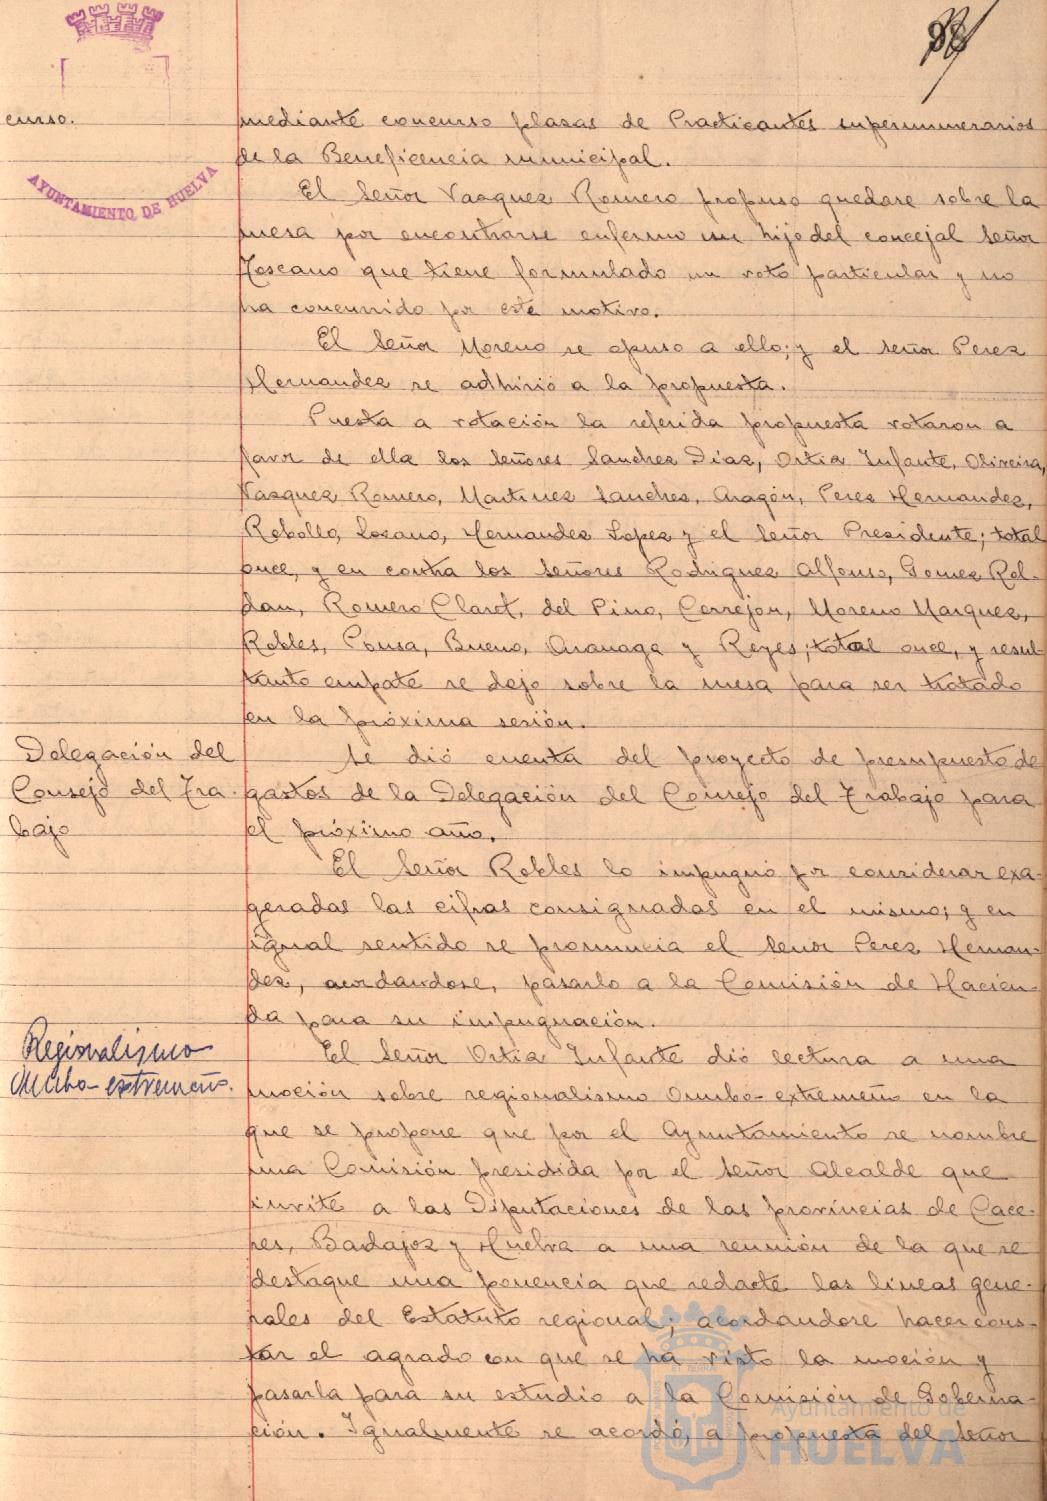 88
curso.
mediante concurso plazas de Practicantes supernumerarios
de la Beneficencia municipal.
AYUNTAMIENTO DE HUELVA
El Señor Vazquez Romero propuso quedase sobre la
mesa por encontrarse enfermo un hijo del concejal Señor
Toscano que tiene formulado un voto particular y no
ha concurrido por este motivo.
El Señor Moreno se opuso a ello; y el señor Perez
Hernandez se adhirió a la propuesta.
Puesta a votación la referida propuesta votaron a
favor de ella los señores Sanchez Diaz, Ortiz Infante, Oliveira,
Vazquez Romero, Martinez Sanchez, Aragón, Perez Hernandez,
Rebollo, Lozano, Hernandez Lopez y el Señor Presidente; total
once, y en contra los Señores Rodriguez Alfonso, Gomez Rol-
dan, Romero Claret, del Pino, Cerrejon, Moreno Marquez,
Robles, Ponsa, Bueno, Aranaga y Reyes; total once, y resul-
tanto empate se dejo sobre la mesa para ser tratado
en la próxima sesión.
Delegación del
Consejo del Tra-
bajo
Se dió cuenta del proyecto de presupuesto de
gastos de la Delegación del Consejo del Trabajo para
el próximo año.
El Señor Robles lo impugnó por considerar exa-
geradas las cifras consignadas en el mismo; y en
igual sentido se pronuncia el Señor Perez Hernan-
dez, acordandose, pasarlo a la Comisión de Hacien-
da para su impugnación.
Regionalismo
Onubo-extremeño.
El Señor Ortiz Infante dió lectura a una
moción sobre regionalismo Onubo-extremeño en la
que se propone que por el Ayuntamiento se nombre
una Comisión presidida por el Señor Alcalde que
invite a las Diputaciones de las provincias de Cace-
res, Badajoz y Huelva a una reunión de la que se
destaque una ponencia que redacte las lineas gene-
rales del Estatuto regional; acordandose hacer cons-
tar el agrado con que se ha visto la moción y
pasarla para su estudio a la Comisión de Goberna-
ción. Igualmente se acordó, a propuesta del Señor
Ayuntamiento de
HUELVA